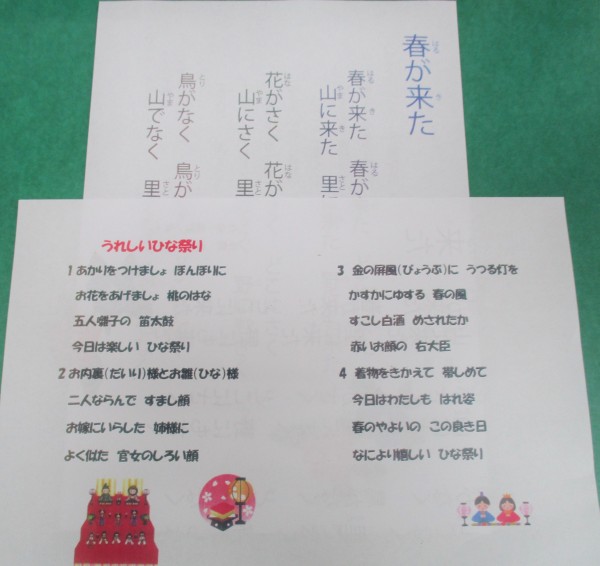 春が来た
春が来た 春が
山に来た 里
花がさく 花が
山にさく 里
鳥がなく 鳥が
山でなく 里
うれしいひな祭り
1 あかりをつけましょ ぼんぼりに
お花をあげましょ 桃のはな
五人囃子の 笛太鼓
今日は楽しい ひな祭り
2 お内裏(だいり)様とお雛(ひな)様
二人ならんで すまし顔
お嫁にいらした 姉様に
よく似た 官女のしろい顔
3 金の屏風(びょうぶ)に うつる灯を
かすかにゆする 春の風
すこし白酒 めされたか
赤いお顔の 右大臣
4 着物をきかえて 帯しめて
今日はわたしも はれ姿
春のやよいの この良き日
なにより嬉しい ひな祭り